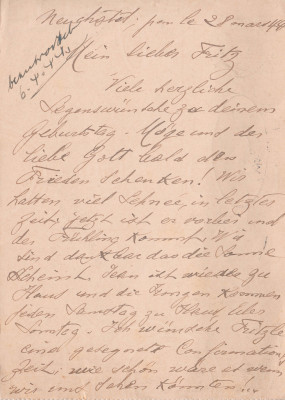 Neuchâtel, den le 28 mars 44
beantwortet
6.4.44
Mein lieber Fritz
Viele herzliche
Segenswünsche zu deinem
Geburtstag. Möge uns der
liebe Gott bald den
Frieden schenken! Wir
hatten viel Schnee, in letzter
Zeit, jetzt ist er vorbei und
der Frühling kommt. Wir
sind dankbar das die Sonne
scheint. Jean ist wieder zu
Haus und die Jungen kommen
jeden Samstag zu Haus über
Sonntag. Ich wünsche Fritzle
eine gesegnete Confirmations
zeit. wie schön wäre es wenn
wir uns sehen könnten!